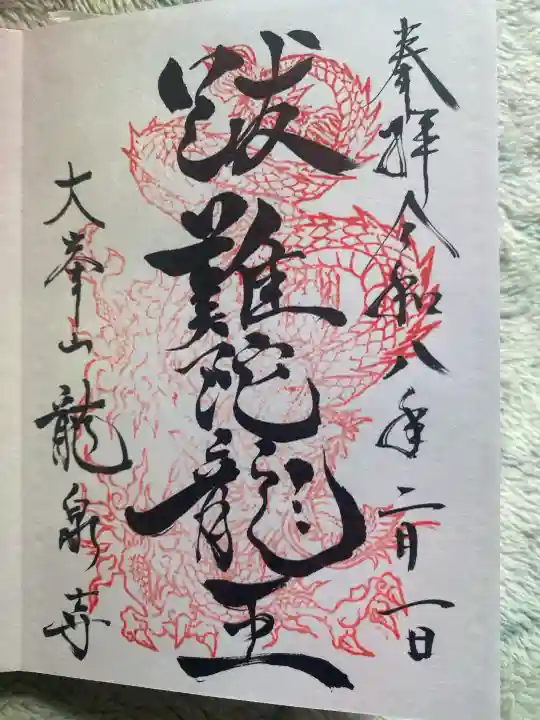 奉拝 令和八年 二月一日
跋難陀龍王
大峯山 龍泉寺